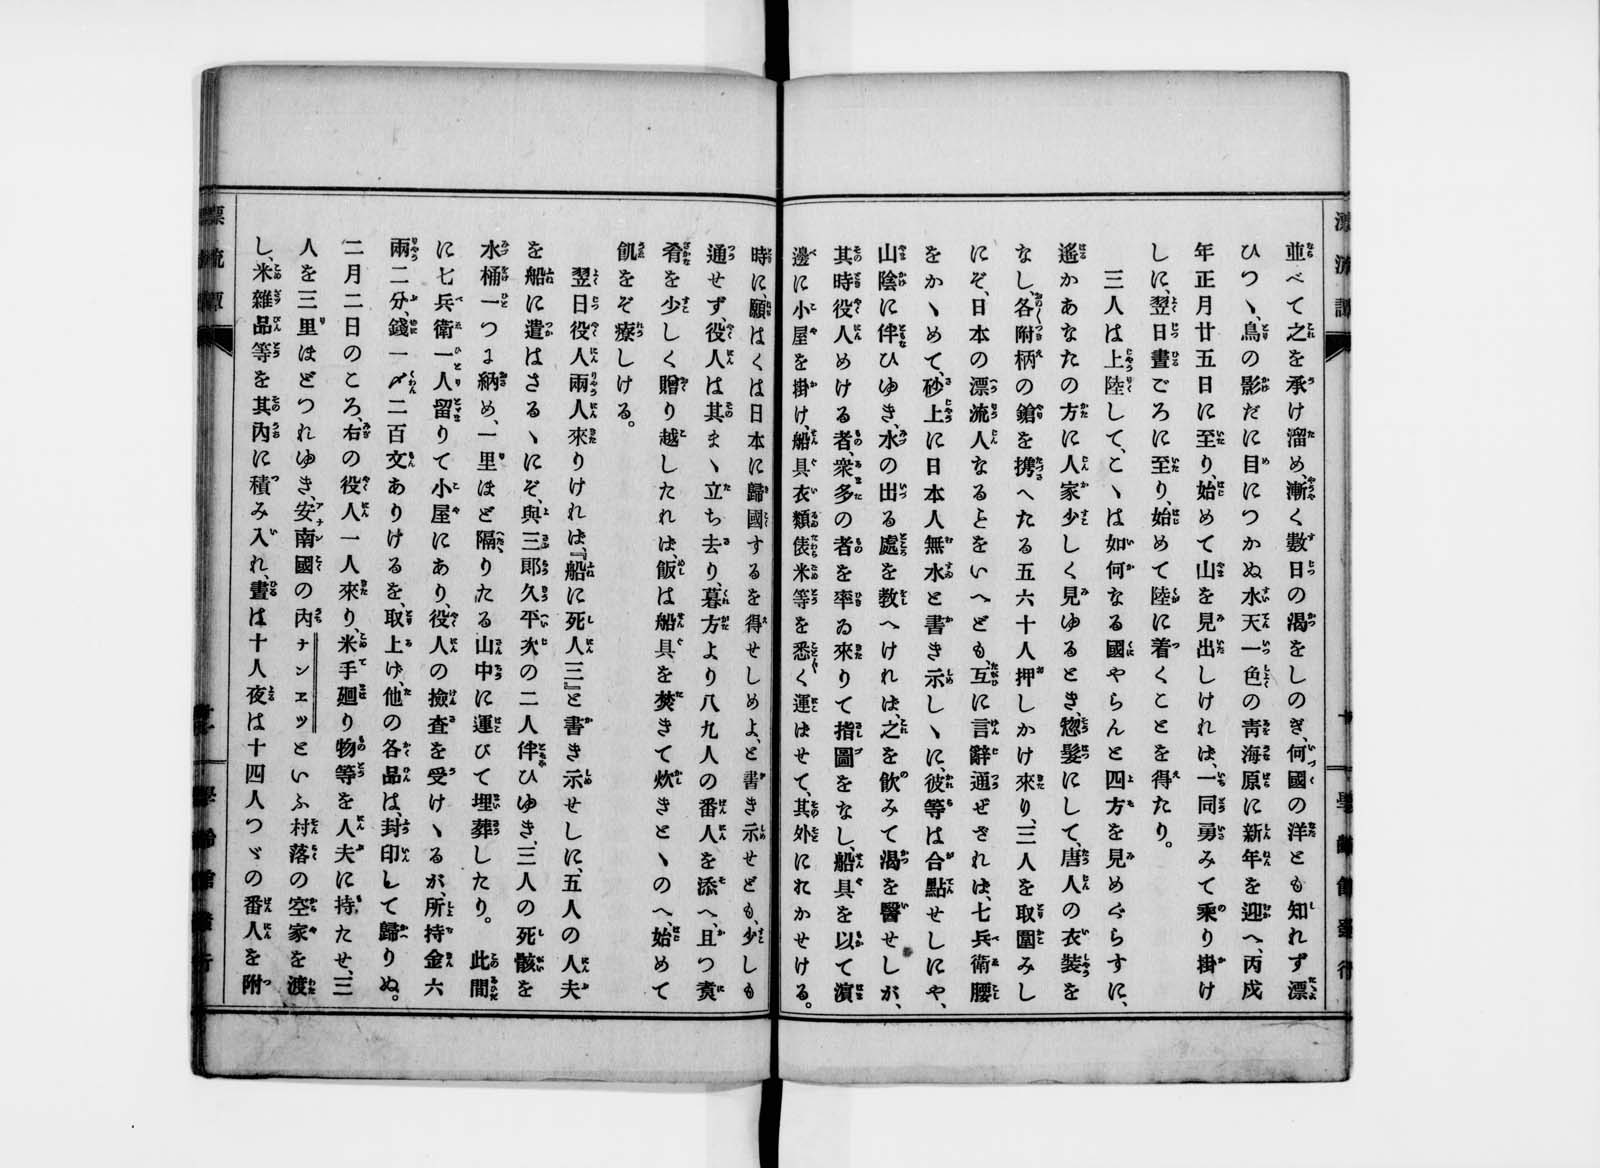 漂流譚
十
學齡館發行
並べて之を承け溜め、漸く數日の渴をしのぎ、何國の洋とも知れず漂
ひつヽ、鳥の影だに目につかぬ水天一色の靑海原に新年を迎へ、丙戌
年正月廿五日に至り、始めて山を見出しけれは、一同勇みて乘り掛け
しに、翌日晝ごろに至り、始めて陸に着くことを得たり。
三人は上陸して、こヽは如何なる國やらんと四方を見めぐらすに、
遙かあなたの方に人家少しく見ゆるとき、惣髮にして、唐人の衣裝を
なし、各附柄の鎗を携へたる五六十人押しかけ來り、三人を取圍みし
にぞ、日本の漂流人なるとをいへども、互に言辭通ぜざれは、七兵衛腰
をかヽめて、砂上に日本人無水と書き示しヽに、彼等は合點せしにや、
山陰に伴ひゆき、水の出る處を教へけれは、之を飮みて渴を醫せしが、
其時役人めける者、衆多の者を率ゐ來りて指圖をなし、船具を以て濱
邊に小屋を掛け、船具衣類俵米等を悉く運はせて、其外にれかせける。
時に、願はくは日本に歸國するを得せしめよ、と書き示せども、少しも
通せず、役人は其まヽ立ち去り、暮方より八九人の番人を添へ、且つ𤋮
肴を少しく贈り越したれは、飯は船具を焚きて炊きとヽのへ、始めて
飢をぞ療しける。
翌日役人兩人來りけれは、『船に死人三』と書き示せしに、五人の人夫
を船に遣はさるヽにぞ、與三郎久平次の二人伴ひゆき、三人の死骸を
水桶一つに納め、一里ほど隔りたる山中に運びて埋葬したり。 此間
に七兵衛一人留りて小屋にあり、役人の撿査を受けヽるが、所持金六
兩二分、錢一〆二百文ありけるを、取上げ、他の各品は、封印して歸りぬ。
二月二日のころ、右の役人一人來り、米手廻り物等を人夫に持たせ、三
人を三里ほどつれゆき、安南國の內ナンヱツといふ村落の空家を渡
し、米雜品等を其內に積み入れ、晝は十人夜は十四人つヾの番人を附
漂流譚
學齡館發行